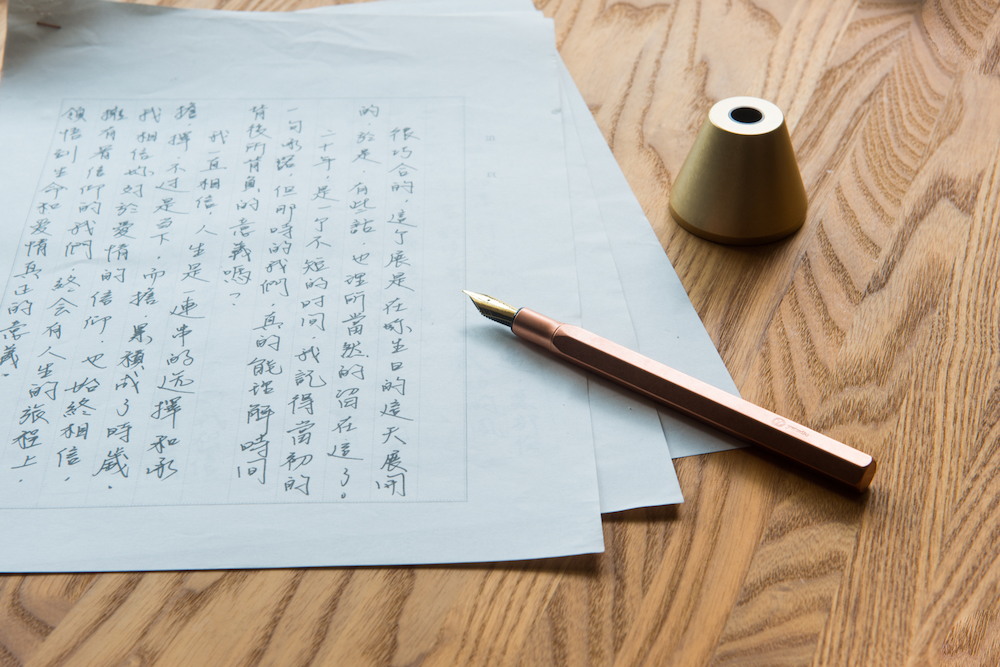 很巧合的,這个展是在你生日的這天展開
的 於是,有些話,也理所當然的留在這了。
二十年,是个不短的时间,我記得當初的
一句承諾,但那時的我們,真的能理解時間
背後所背負的意義嗎?
我直相信,人生是一連串的选擇和承
擔 擇不过是当下,而擔,累積成了時歲.
我相信妳对於愛情的信仰,也始終相信,
擁有着信仰的我們,終会有人生的旅程上,
領悟到生命和爱情真正的意義.